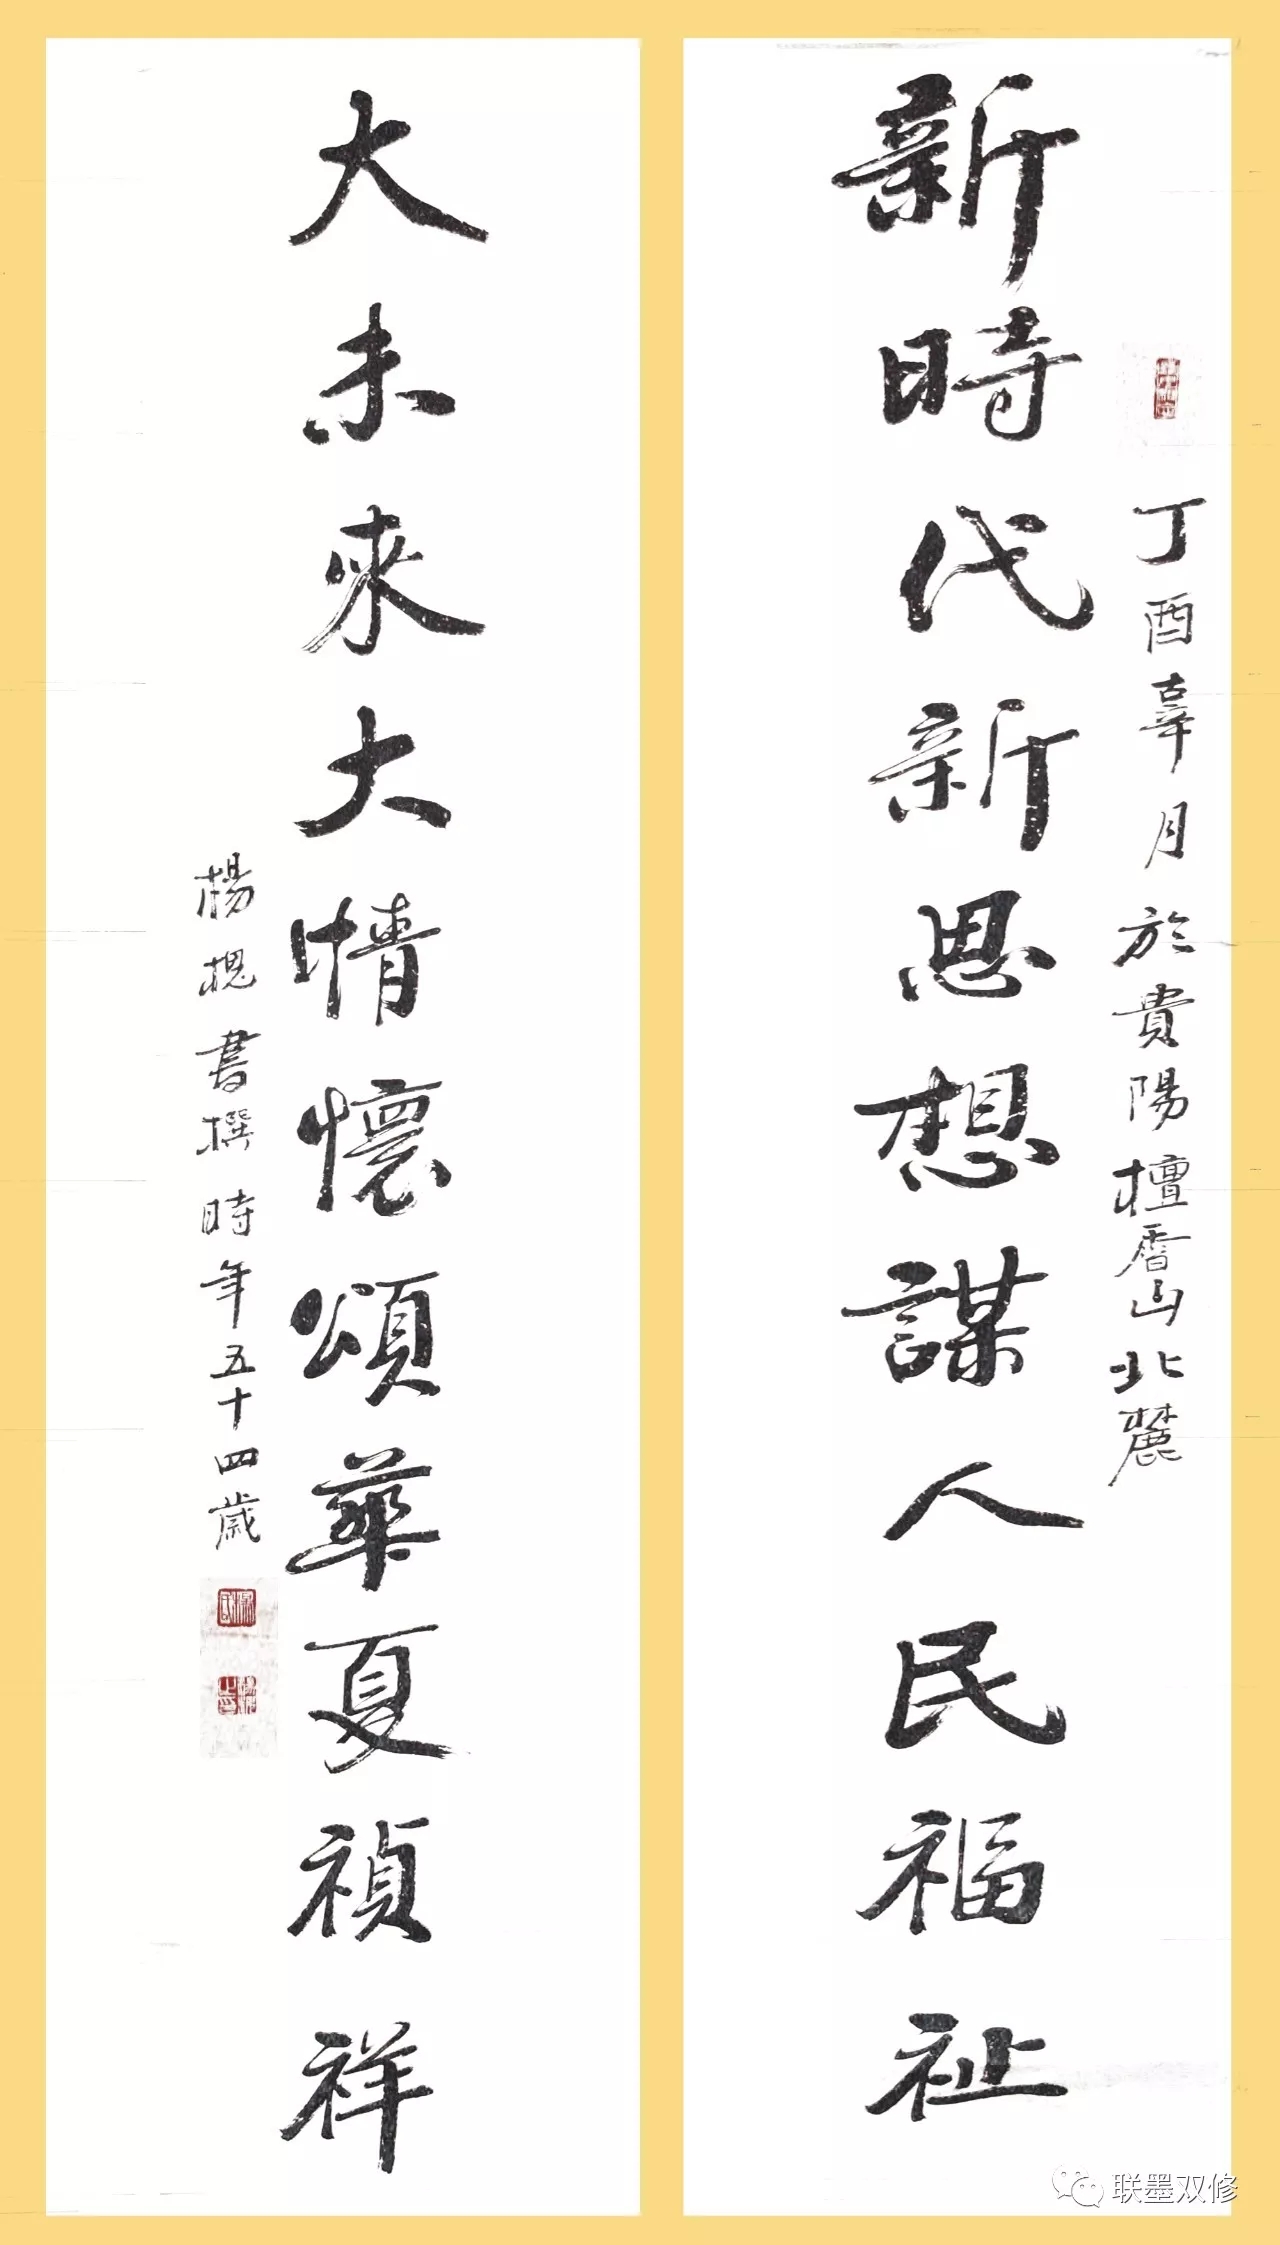 新時代新思想謀人民福祉
丁酉辜月於貴陽檀香山北麓
大未來大情懷頌華夏禎祥
楊槐書撰時年五十四歲
联墨双修